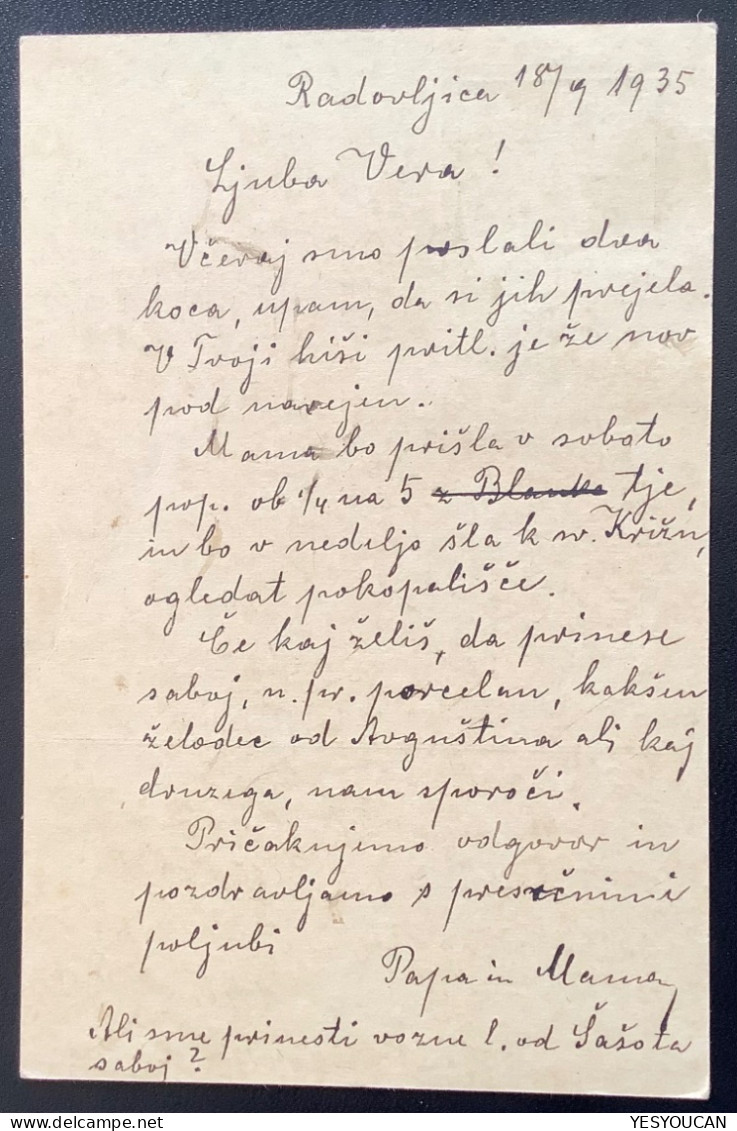 Radovljica 18/9 1935
Ljuba Vera!
Včeraj smo poslali dva
koca, upam, da si jih prejela.
V Tvoji hiši pritl. je že nov
pod narejen.
Mama bo prišla v soboto
pop. ob 1/4 na 5 z Blanko tje,
in bo v nedeljo šla k sv. Križu,
ogledat pokopališče.
Če kaj želiš, da prinese
saboj, n. pr. porcelan, kakšen
želodec od Avguština ali kaj
druzega, nam sporoči.
Pričakujemo odgovor in
pozdravljamo s presrčnimi
poljubi
Papa in Mama
Ali sme prinesti vozne l. od Šašota
saboj?
YESYOUCAN